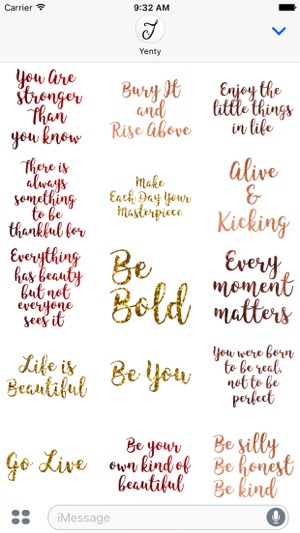 Carrier 9:32 AM
Yenty
You Are
stronger
Than
you know
Bury It
and
Rise Above
Enjoy the
little things
in life
There is
always
something
to be
thankful for
Make
Each Day Your
Masterpiece
Alive
&
Kicking
Everything
has beauty
but not
everyone
sees it
Be
Bold
Every
moment
matters
Life is
Beautiful
Be You
You were born
to be real,
not to be
perfect
Go Live
Be your
own kind of
beautiful
Be silly
Be honest
Be kind
iMessage